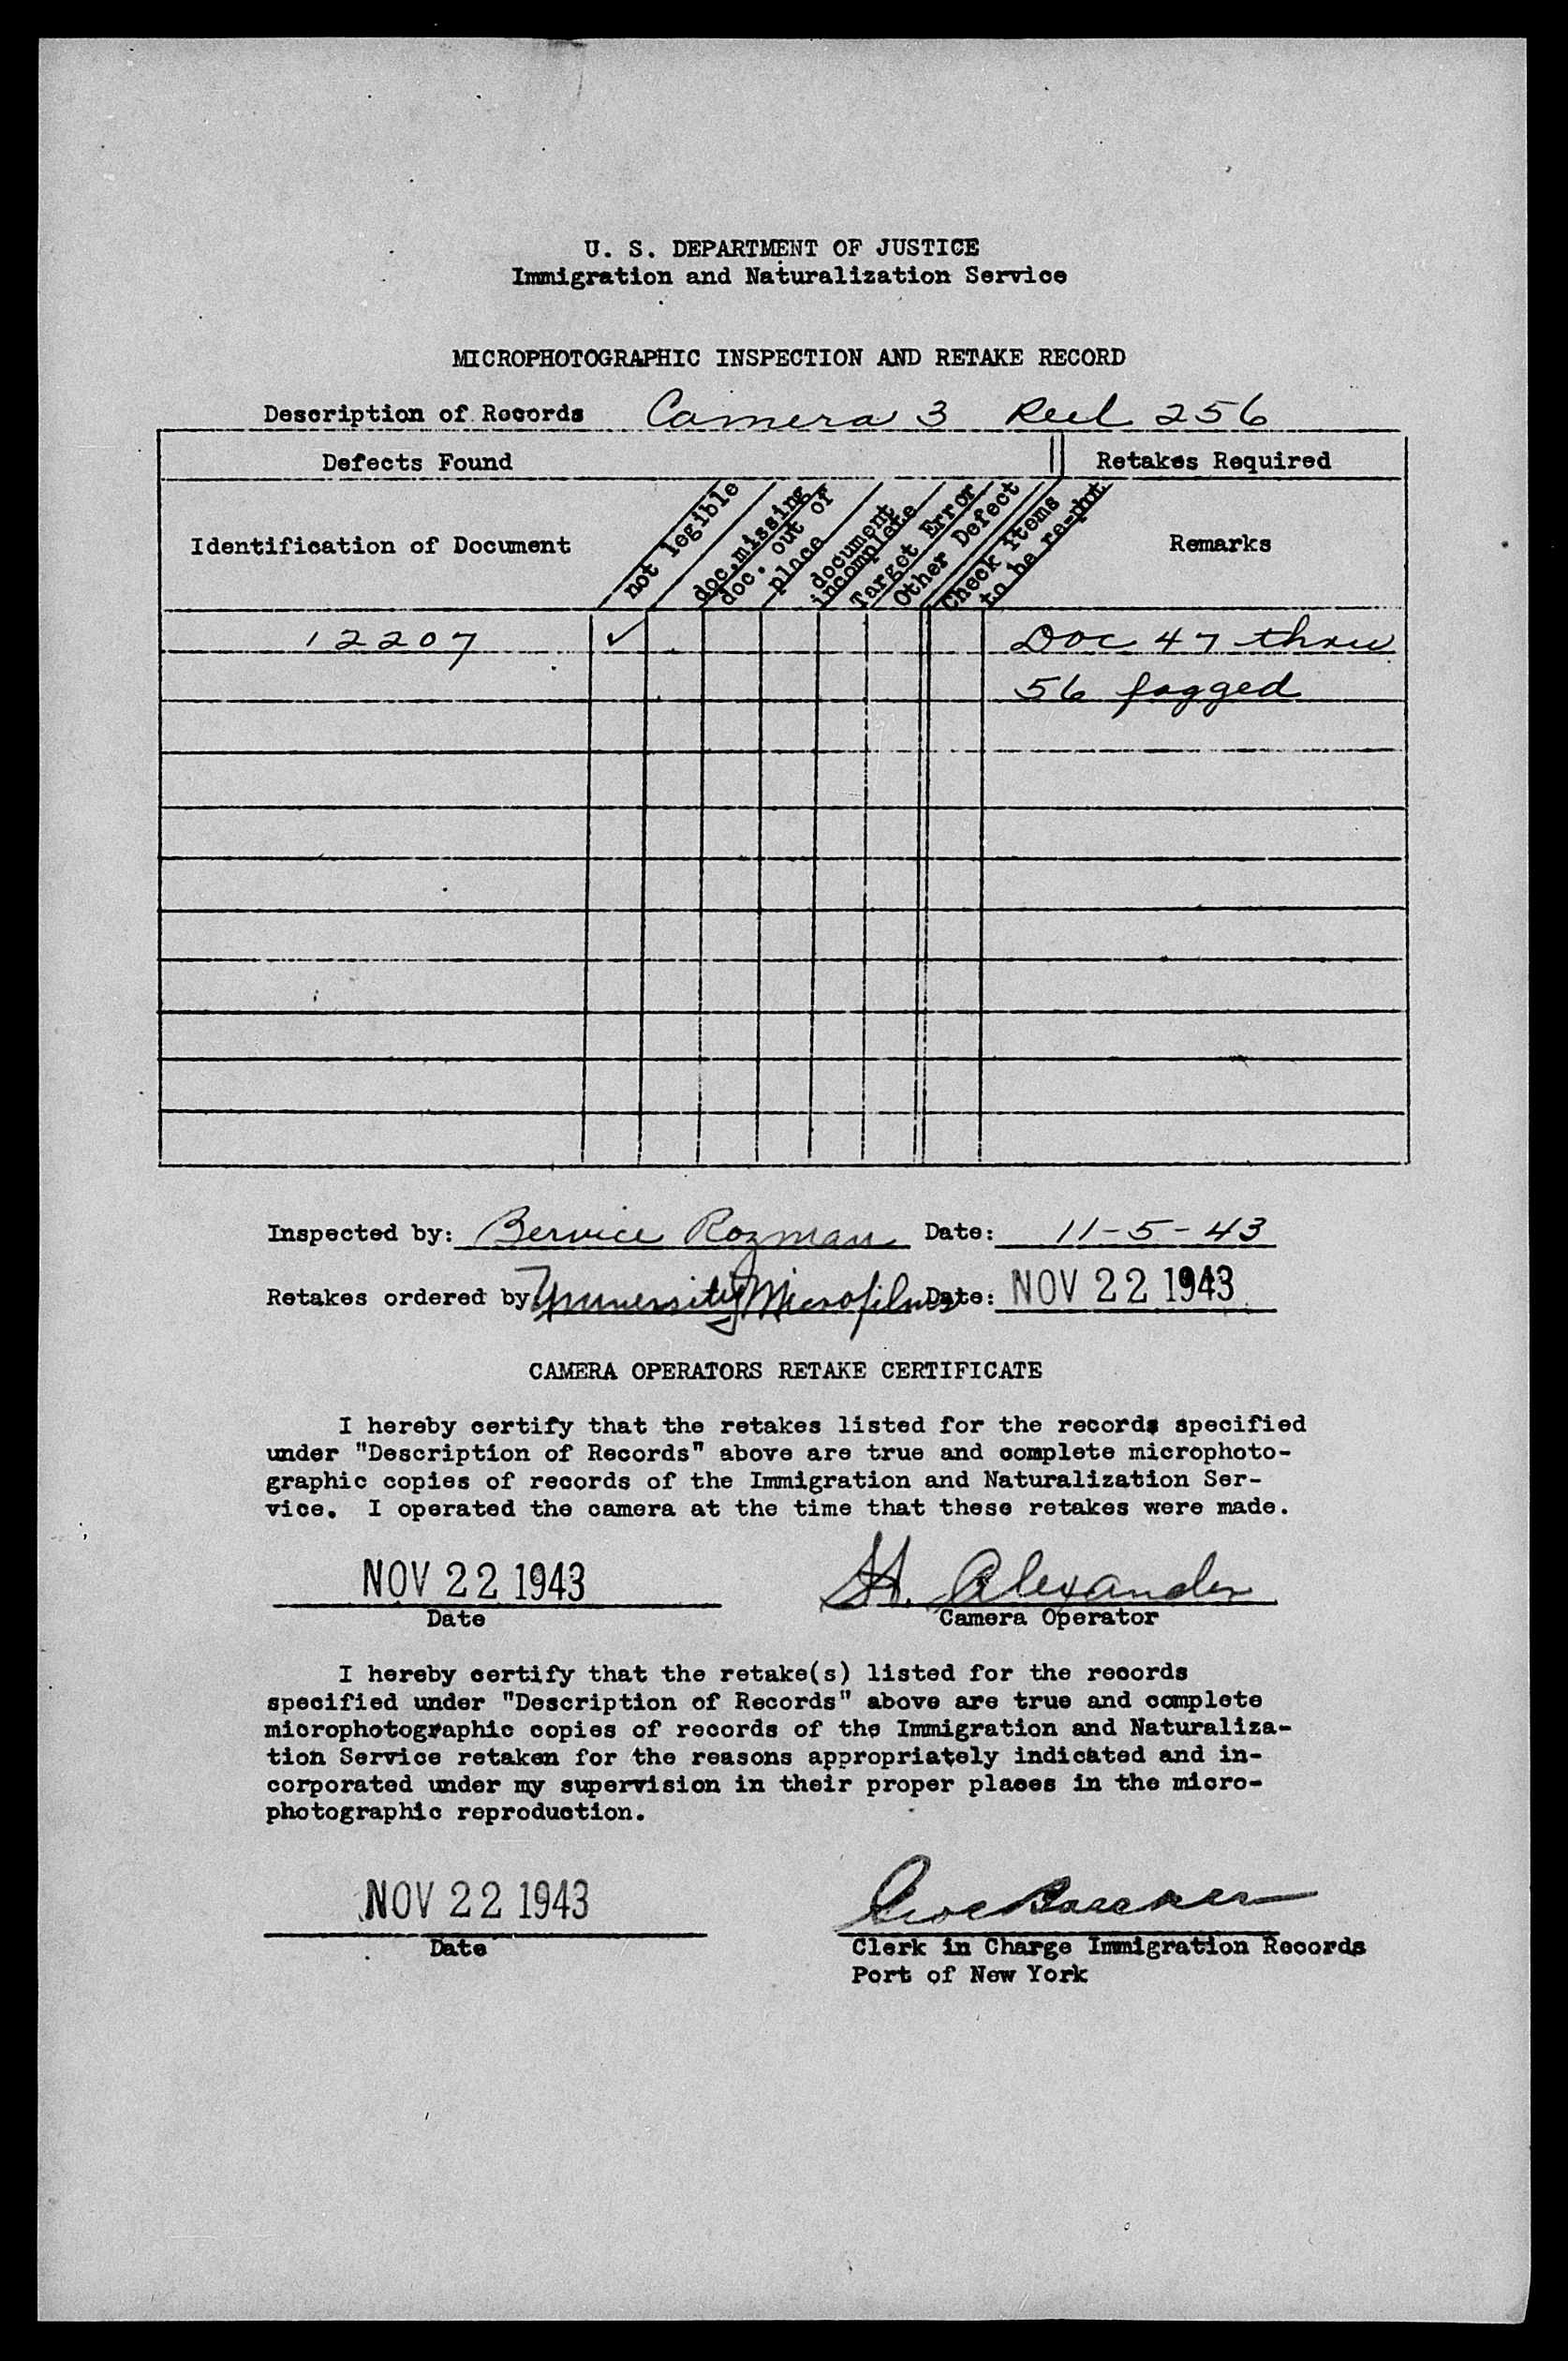 U. S. DEPARTMENT OF JUSTICE
Immigration and Naturalization Service
MICROPHOTOGRAPHIC INSPECTION AND RETAKE RECORD
Description of Records Camera 3 Reel 256
Defects Found Retakes Required
Identification of Document
not legible
doc.missing
doc. out of
place
document
incomplete
Target Error
Other Defect
Check items
to be re-phot
Remarks
12207 ✓ Doc 47 thru
56 fogged
Inspected by: Bernice Rozman Date: 11-5-43
Retakes ordered by: University Microfilms Date: NOV 22 1943
CAMERA OPERATORS RETAKE CERTIFICATE
I hereby certify that the retakes listed for the records specified
under "Description of Records" above are true and complete microphoto-
graphic copies of records of the Immigration and Naturalization Ser-
vice. I operated the camera at the time that these retakes were made.
NOV 22 1943 H. Alexander
Date Camera Operator
I hereby certify that the retake(s) listed for the records
specified under "Description of Records" above are true and complete
microphotographic copies of records of the Immigration and Naturaliza-
tion Service retaken for the reasons appropriately indicated and in-
corporated under my supervision in their proper places in the micro-
photographic reproduction.
NOV 22 1943
Date Clerk in Charge Immigration Records
Port of New York